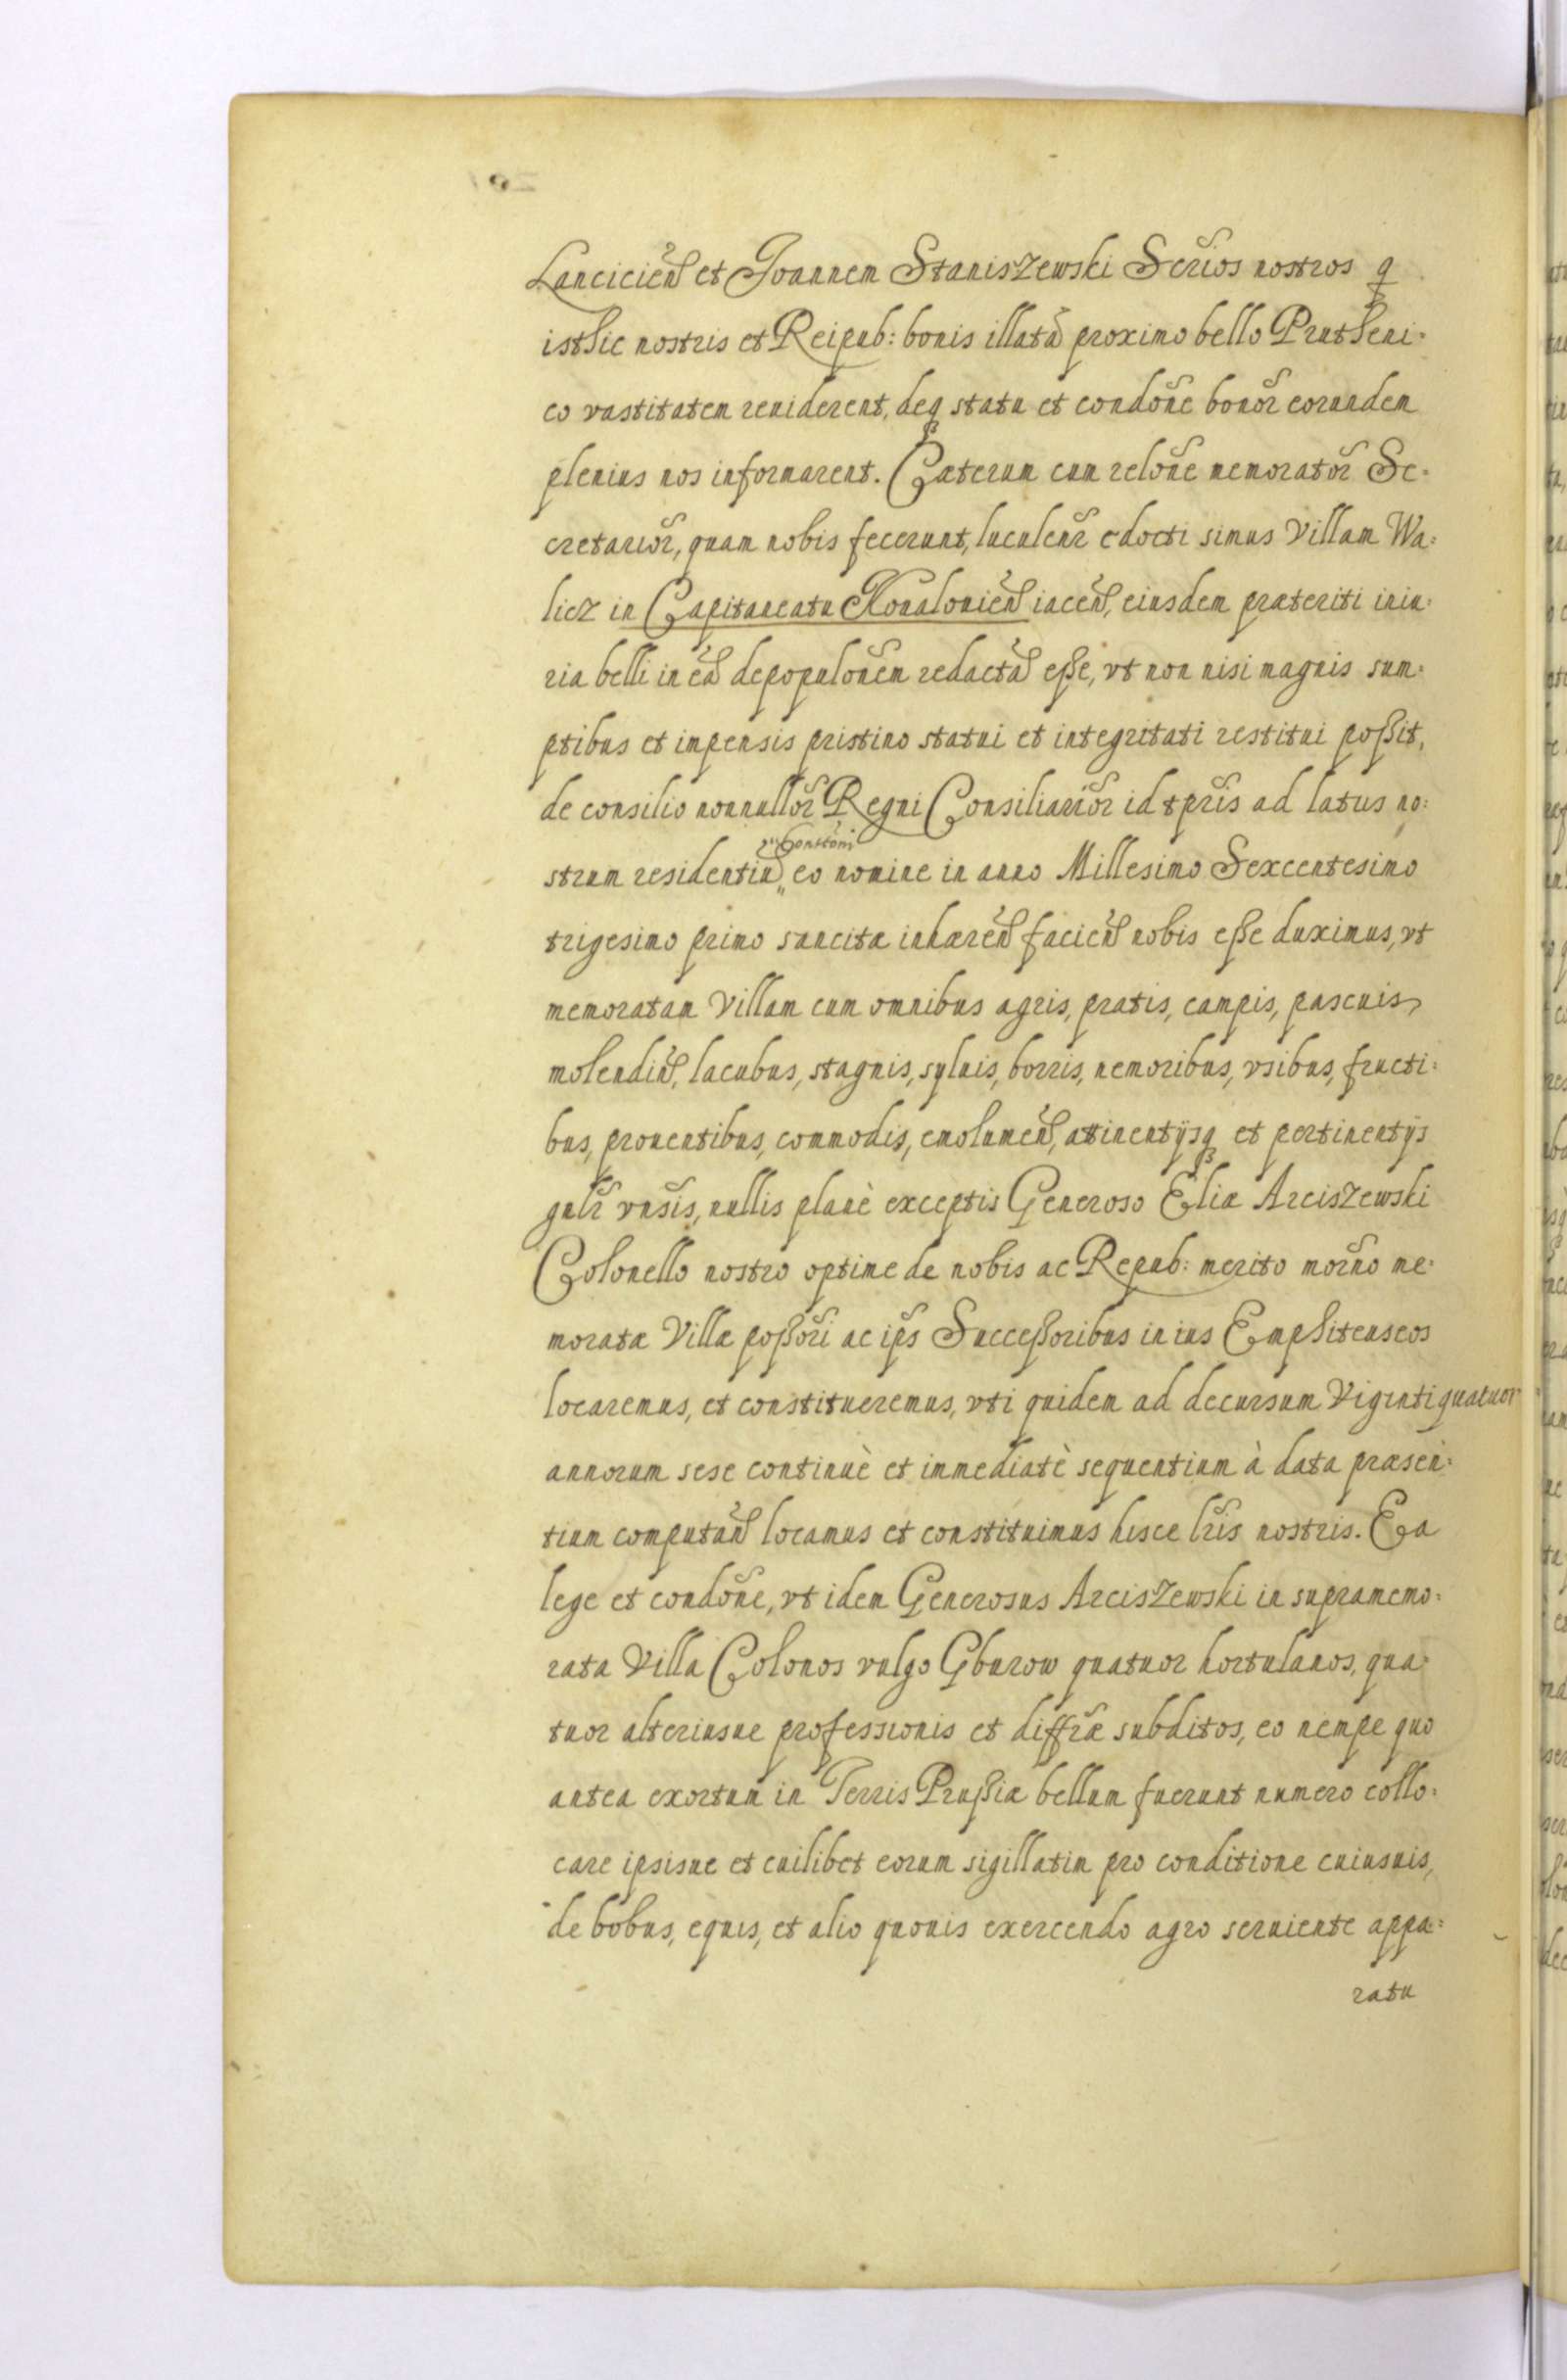 Lancicień et Joannem Staniszewski Scrios nostros q
isthic nostris et Reipub: bonis illatā proximo bello Prutheni-
co vastitatem reuiderent, deq statu et condōne bonōr eorundem
plenius nos informarent. Cæterum cum relōne memoratōr Se-
cretariōr, quam nobis fecerunt, luculenr edocti simus Villam Wa:
licz in Capitaneatu Kowalouień iaceń, eiusdem præteriti iniu-
ria belli in eā depopulōnem redactā eße, vt non nisi magnis sum-
ptibus et impensis pristino statui et integritati restitui poßit,
de consilio nonnullōr Regni Consiliariōr id tpris ad latus no:
" Consttōni
strum residentiū " eo nomine in anno Millesimo Sexcentesimo
trigesimo primo sancitæ inhæreń facień nobis eße duximus, vt
memoratam Villam cum omnibus agris, pratis, campis, pascuis,
molendiń, lacubus, stagnis, syluis, borris, nemoribus, vsibus, fructi:
bus, prouentibus, commodis, emolumeń, attinentijsq et pertinentijs
gnlr vnsis, nullis planè exceptis Generoso Eliæ Arciszewski
Colonello nostro optime de nobis ac Repub: merito morno me-
moratæ Villæ poßori ac ips Succeßoribus in ius Emphiteuseos
locaremus, et constitueremus, vti quidem ad decursum Viginti quatuor
annorum sese continuè et immediatè sequentium à data præsen-
tium computań locamus et constituimus hisce lris nostris. Ea
lege et condōne, vt idem Generosus Arciszewski in supramemo:
rata Villa Colonos vulgo Gburow quatuor hortulanos, qua-
tuor alteriusue professionis et diffræ subditos, eo nempe quo
antea exortum in Terris Prußiæ bellum fuerunt numero collo:
care ipsisue et cuilibet eorum sigillatim pro conditione cuiusuis,
de bobus, equis, et alio quouis exercendo agro seruiente appa:
ratu